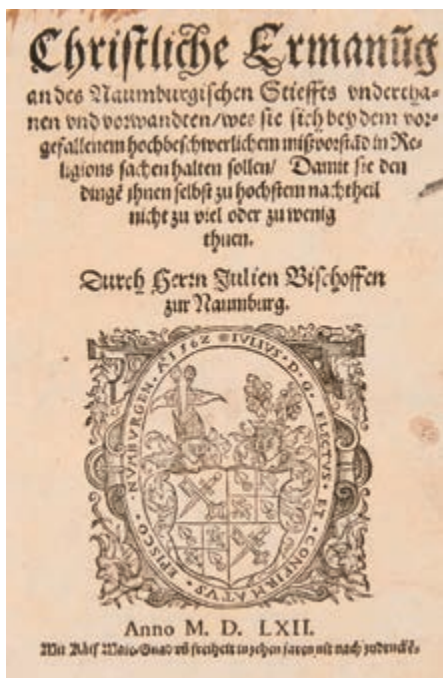 Christliche Ermanūg
an des Naumburgischen Stieffts vndertha-
nen vnd vorwandten/wes sie sich bey dem vor-
gefallenem hochbeschwerlichem mißvorstād in Re-
ligions sachen halten sollen/ Damit sie den
dingē jhnen selbst zu hochstem nachtheil
nicht zu viel oder zu wenig
thuen.
Durch Herrn Julien Bischoffen
zur Naumburg.
IVLIVS · D · G · ELECTVS · ET · CONFIRMATVS · EPISCO · NVMBVRGEN · A 1562
Anno M. D. LXII.
Mit Röm̄ Maie. Gnad vn̄ freiheit in zehen jaren nit nach zudruckē.